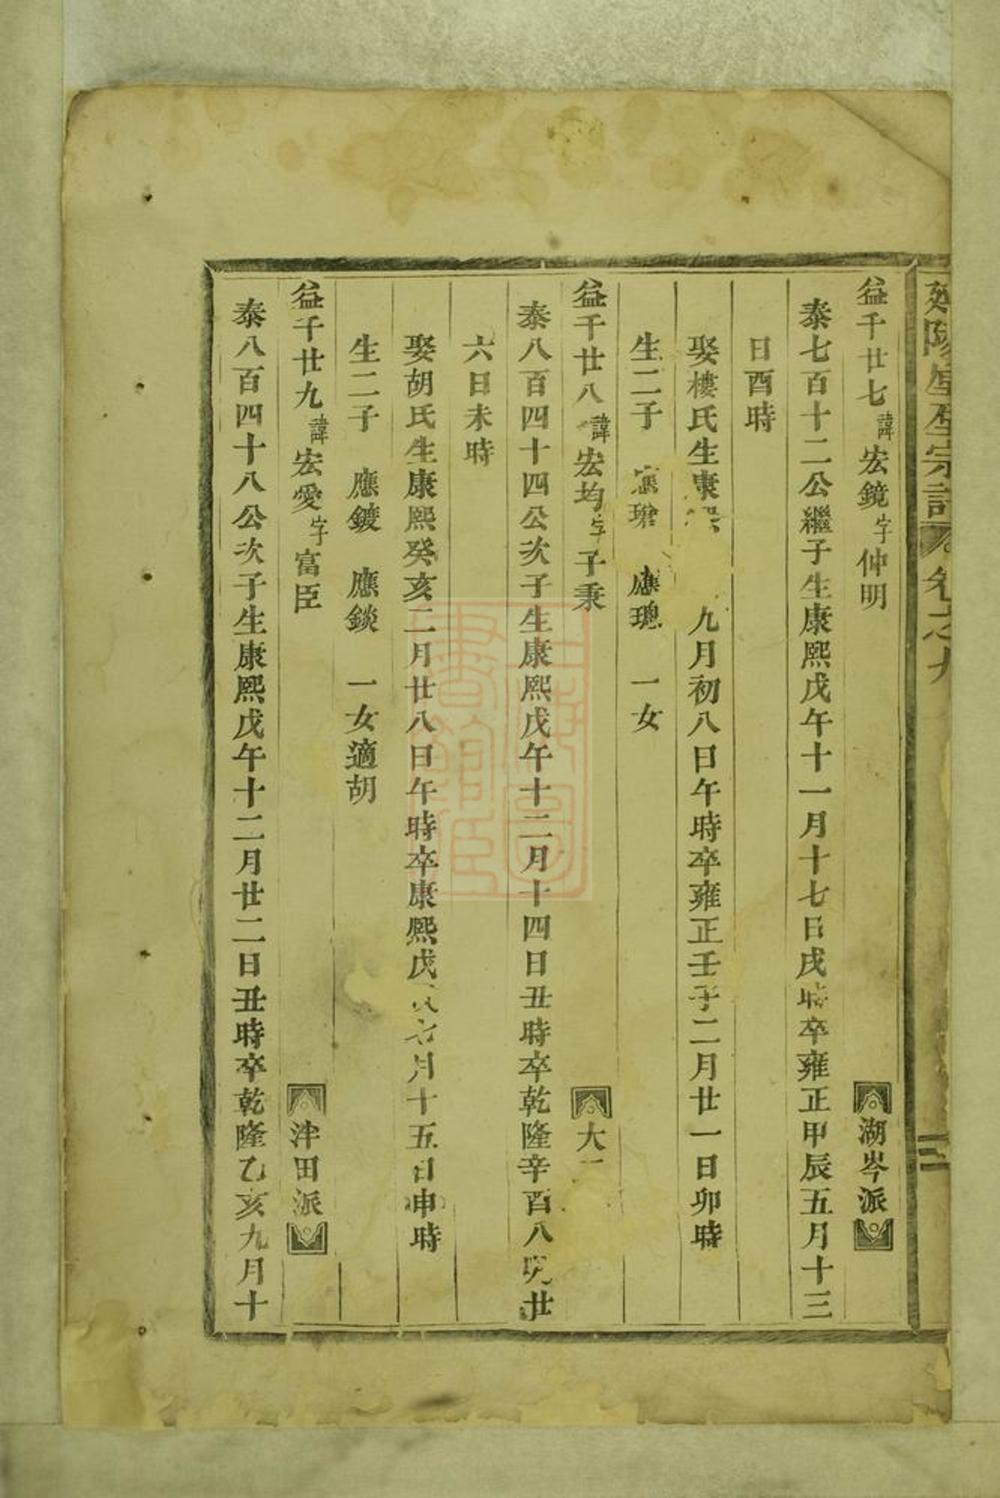 宗譜 卷之九
益千廿七諱宏鏡字仲明 湖岑派
泰七百十二公繼子生康熙戊午十一月十七日戌時卒雍正甲辰五月十三
日酉時
娶樓氏生康 九月初八日午時卒雍正壬子二月廿一日卯時
生二子 應 應璁 一女
益千廿八諱宏均字子秉 大
泰八百四十四公次子生康熙戊午十二月十四日丑時卒乾隆辛酉八 廿
六日未時
娶胡氏生康熙癸亥二月廿八日午時卒康熙戊 七月十五日申時
生二子 應鍍 應錟 一女適胡
益千廿九諱宏愛字富臣 沣田派
泰八百四十八公次子生康熙戊午十二月廿二日丑時卒乾隆乙亥九月十